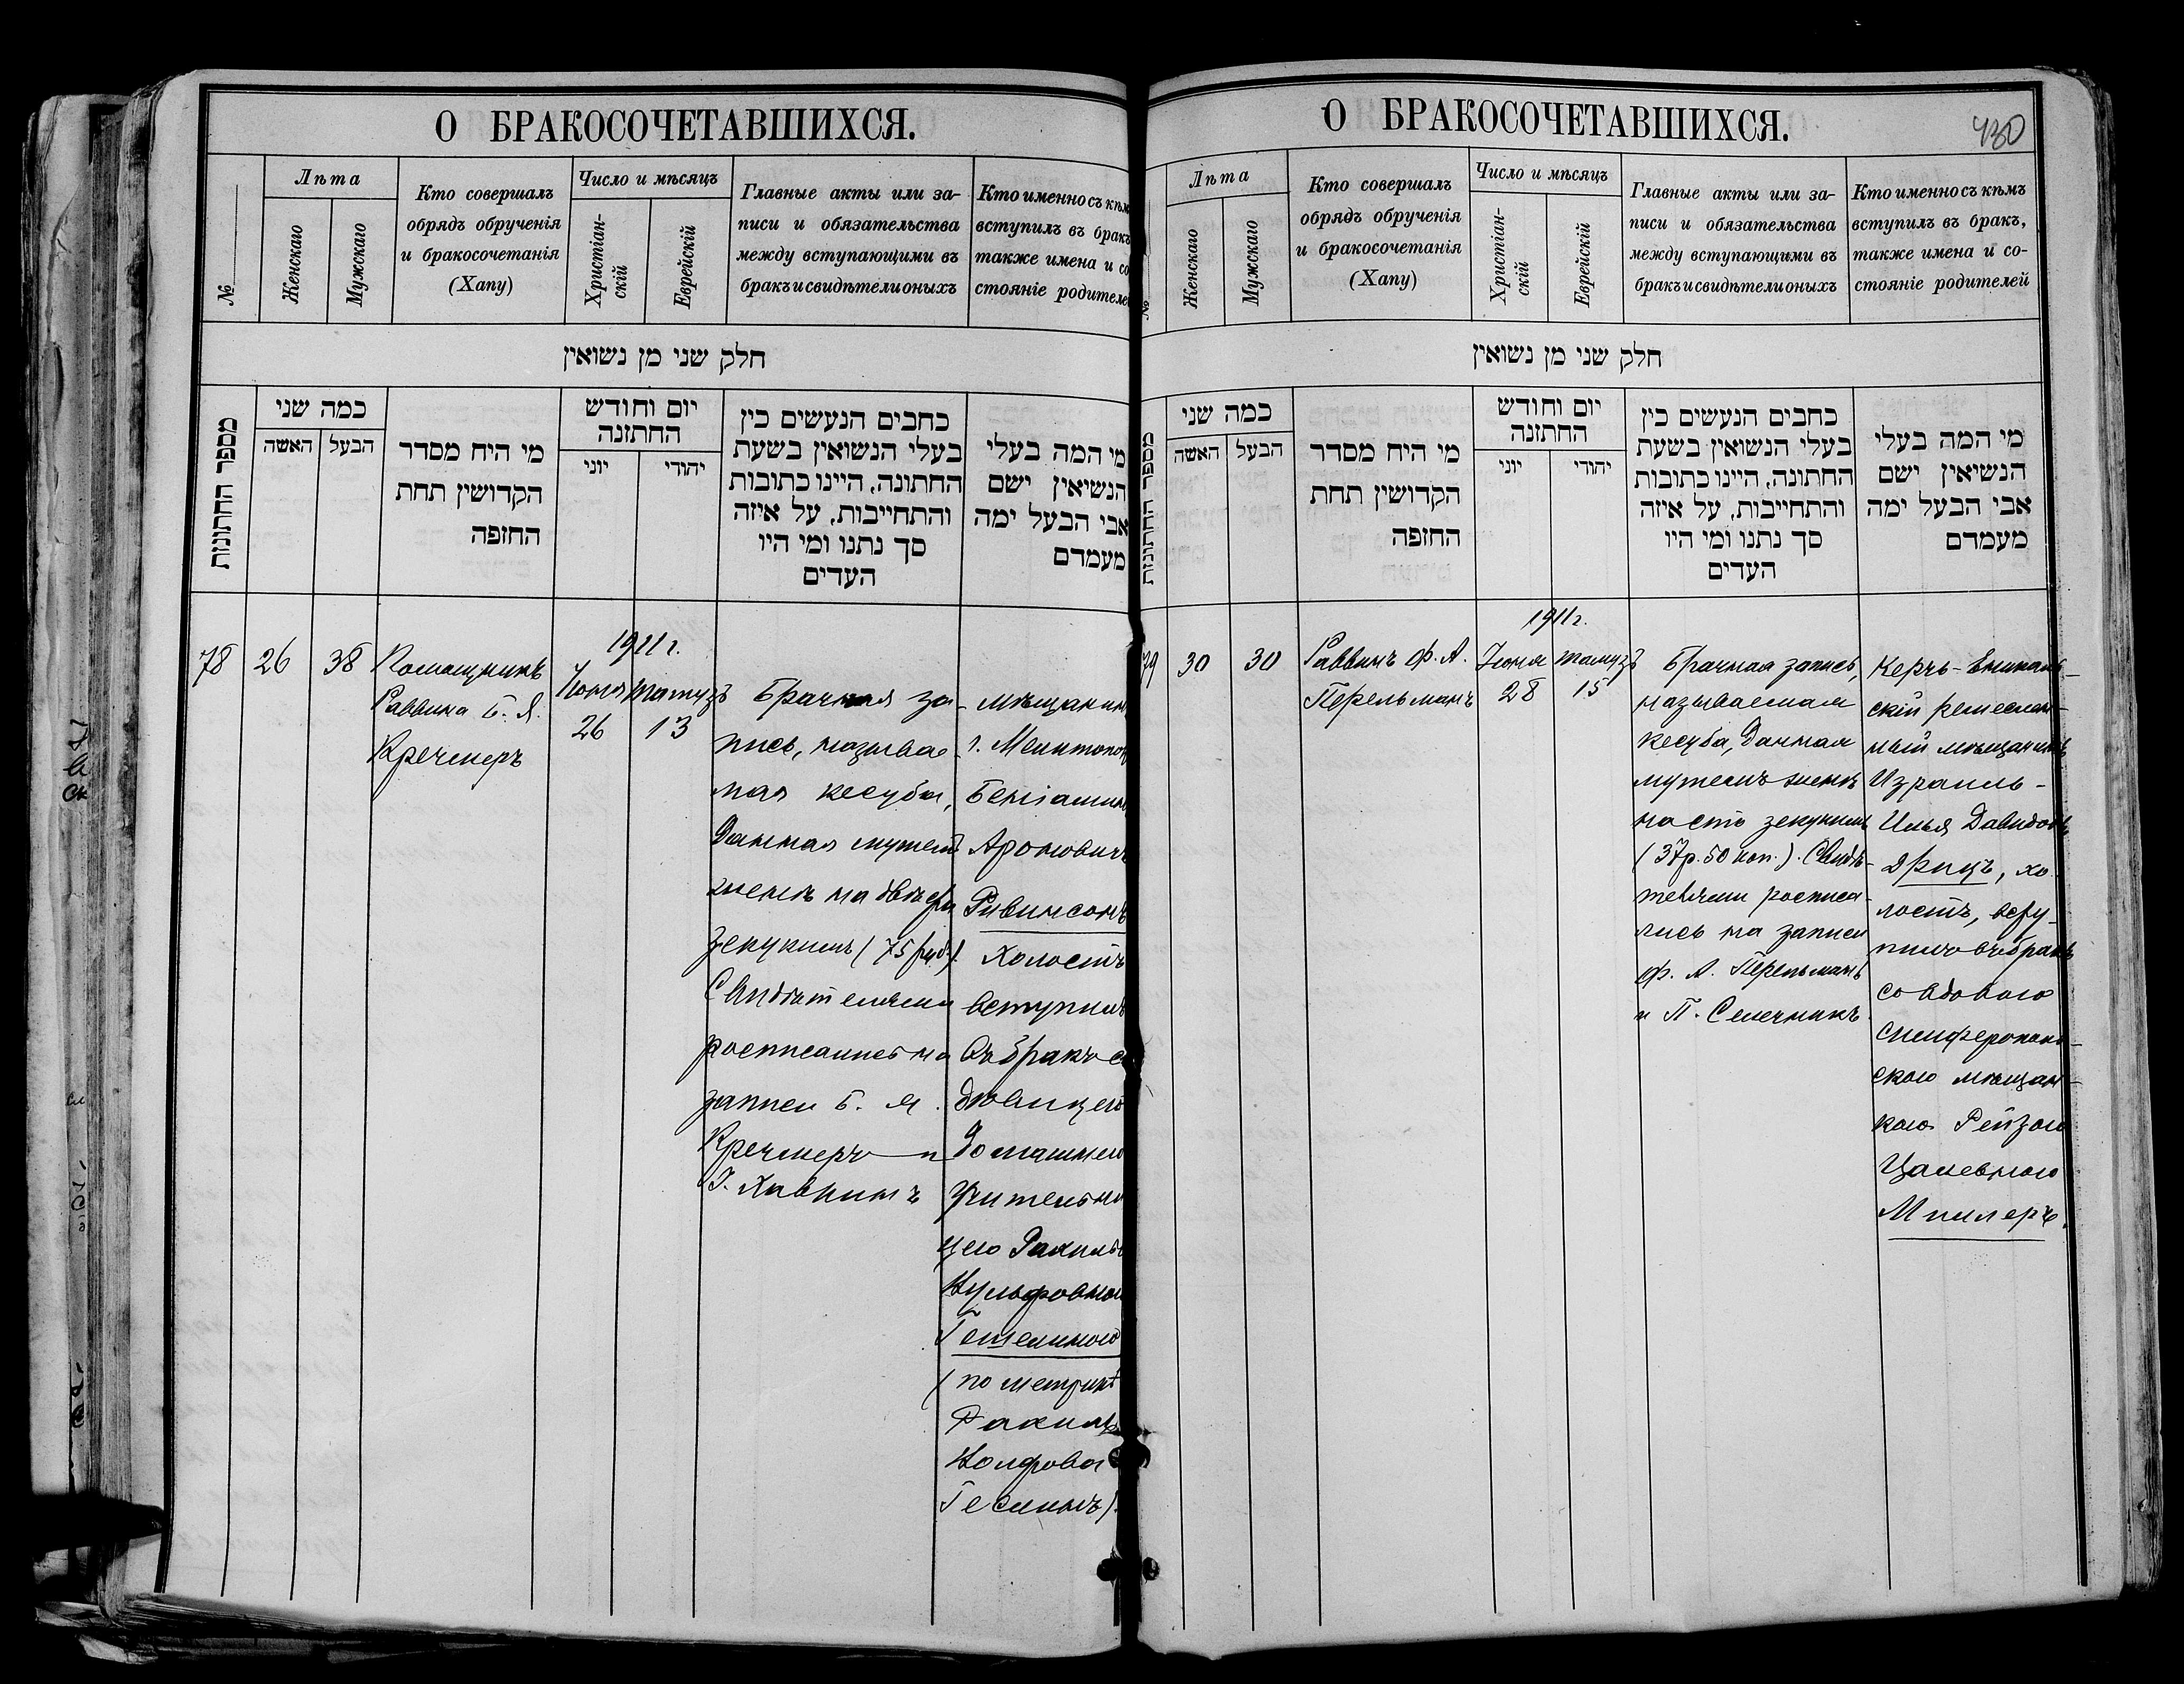 О БРАКОСОЧЕТАВШИХСЯ.
№
Лѣта
Женскаго
Мужскаго
Кто совершалъ
обрядъ обрученія
и бракосочетанія
(Хапу)
Число и мѣсяцъ
Христіан-
скій
Еврейскій
Главные акты или за-
писи и обязательства
между вступающими въ
бракъ и свидѣтели оныхъ
Кто именно съ кѣмъ
вступилъ въ бракъ
также имена и со
стояніе родителей
חלק שני מן נשואין
מספר החתונות
כמה שני
האשה
הבעל
מי היה מסדר
הקדושין תחת
החופה
יום וחודש
החתונה
יוני
יהודי
כתבים הנעשים בין
בעלי הנשואין בשעת
החתונה, היינו כתובות
והתחייבות, על איזה
סך נתנו ומי היו
העדים
מי המה בעלי
הנשיאין ישם
אבי הבעל ימה
מעמדם
78
26
38
Помощникъ
Раввина Б. Я.
Кречмеръ
1911 г.
Іюня
26
тамузъ
13
Брачная за-
пись, называе-
мая кесуба,
данная мужемъ
женѣ на двѣсти
зекукимъ (75 руб.).
Свидѣтелями
росписались на
записи Б. Я.
Кречмеръ и
І. Хавкинъ
мѣщанинъ
г. Мелитополя
Беніаминъ
Ароновичъ
Ривинсонъ
холостъ
вступилъ
въ бракъ съ
дѣвицею
домашнею
учительни
цею Рахилью
Вульфовною
Гешелиною
(по метрикѣ
Рахиль
Волфова
Геслинъ).
О БРАКОСОЧЕТАВШИХСЯ.
430
№
Лѣта
Женскаго
Мужскаго
Кто совершалъ
обрядъ обрученія
и бракосочетанія
(Хапу)
Число и мѣсяцъ
Христіан-
скій
Еврейскій
Главные акты или за-
писи и обязательства
между вступающими въ
бракъ и свидѣтели оныхъ
Кто именно съ кѣмъ
вступилъ въ бракъ,
также имена и со-
стояніе родителей
חלק שני מן נשואין
מספר החתונות
כמה שני
האשה
הבעל
מי היה מסדר
הקדושין תחת
החופה
יום וחודש
החתונה
יוני
יהודי
כתבים הנעשים בין
בעלי הנשואין בשעת
החתונה, היינו כתובות
והתחייבות, על איזה
סך נתנו ומי היו
העדים
מי המה בעלי
הנשיאין ישם
אבי הבעל ימה
מעמדם
79
30
30
Раввинъ Ф. А.
Перельманъ
1911 г.
Іюня
28
тамузъ
15
Брачная запись,
называемая
кесуба, данная
мужемъ женѣ
на сто зекукимъ
(37 р. 50 коп.). Свидѣ-
телями росписа-
лись на записи
Ф. А. Перельманъ
и П. Селечникъ
Керчь-Еникаль-
скій ремеслен-
ный мѣщанинъ
Израиль-
Илья Давидовъ
Дрицъ, хо
лостъ, всту-
пилъ въ бракъ
со вдовою
симферополь-
скою мѣщан-
кою Рейзою
Цалевною
Миллеръ.